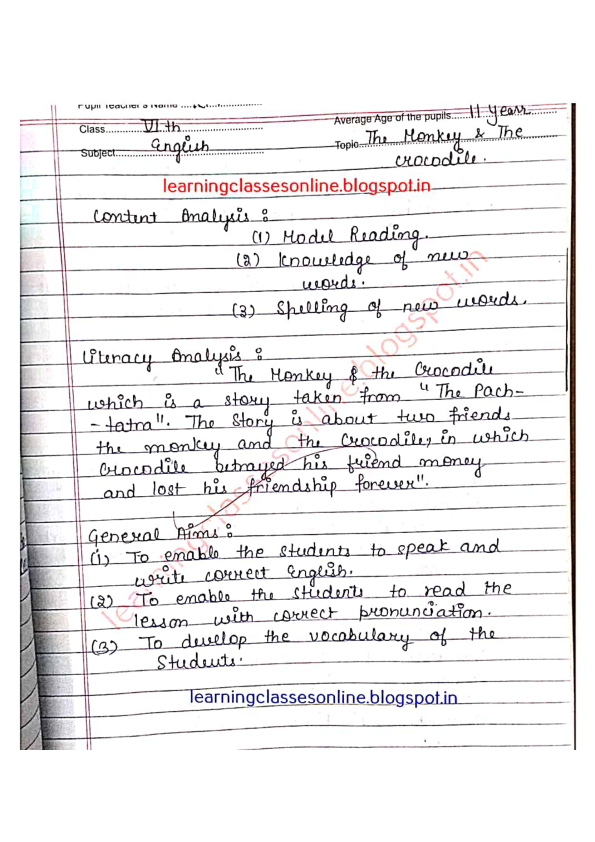 Pupil Teacher's Name
Class VIth Average Age of the pupils 11 Years
Subject English Topic The Monkey & The
crocodile.
learningclassesonline.blogspot.in
Content Analysis :
(1) Model Reading.
(2) Knowledge of new
words.
(3) Spelling of new words.
Literacy Analysis :
"The Monkey & the Crocodile
which is a story taken from "The Pach-
-tatra". The Story is about two friends
the monkey and the Crocodile, in which
Crocodile betrayed his friend money
and lost his friendship forever".
General Aims :
(1) To enable the students to speak and
write correct English.
(2) To enable the students to read the
lesson with correct pronunciation.
(3) To develop the vocabulary of the
Students.
learningclassesonline.blogspot.in
learningclassesonline.blogspot.in